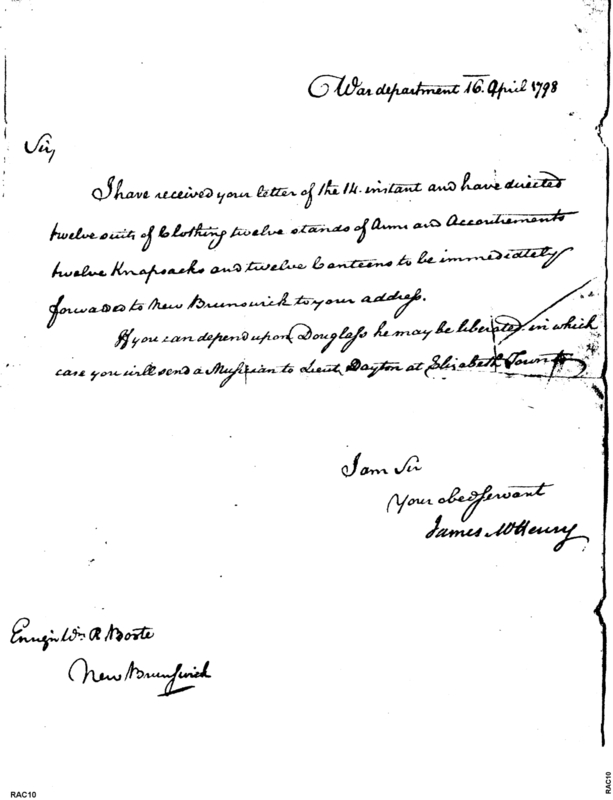 War department 16. April 1798
Sir,
I have received your letter of the 14. instant and have directed
twelve suits of Clothing twelve stands of Arms and Accoutrements
twelve Knapsacks and twelve Canteens to be immediately
forwarded to New Brunswick to your address.
If you can depend upon Douglass he may be liberated in which
case you will send a Musician to Lieut Dayton at Elizabeth Town
I am Sir
Your obed servant
James McHenry
Ensign Wm R Boote
New Brunswick
RAC10
RAC10